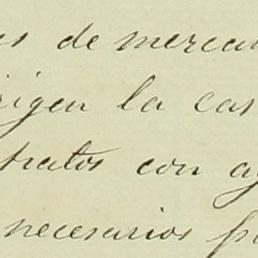 es de mercan
rigen la cas
tratos con ag
necesarios pa